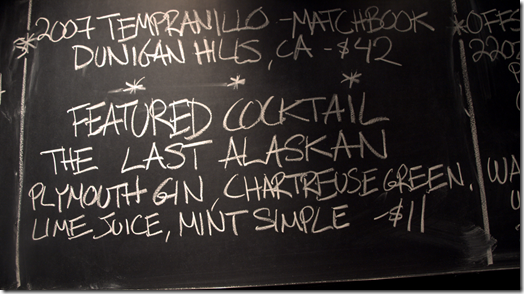 * 2007 TEMPRANILLO - MATCHBOOK
DUNIGAN HILLS, CA - $42
* * *
FEATURED COCKTAIL
THE LAST ALASKAN
PLYMOUTH GIN, CHARTREUSE GREEN,
LIME JUICE, MINT SIMPLE - $11
* OFFS
220
WA